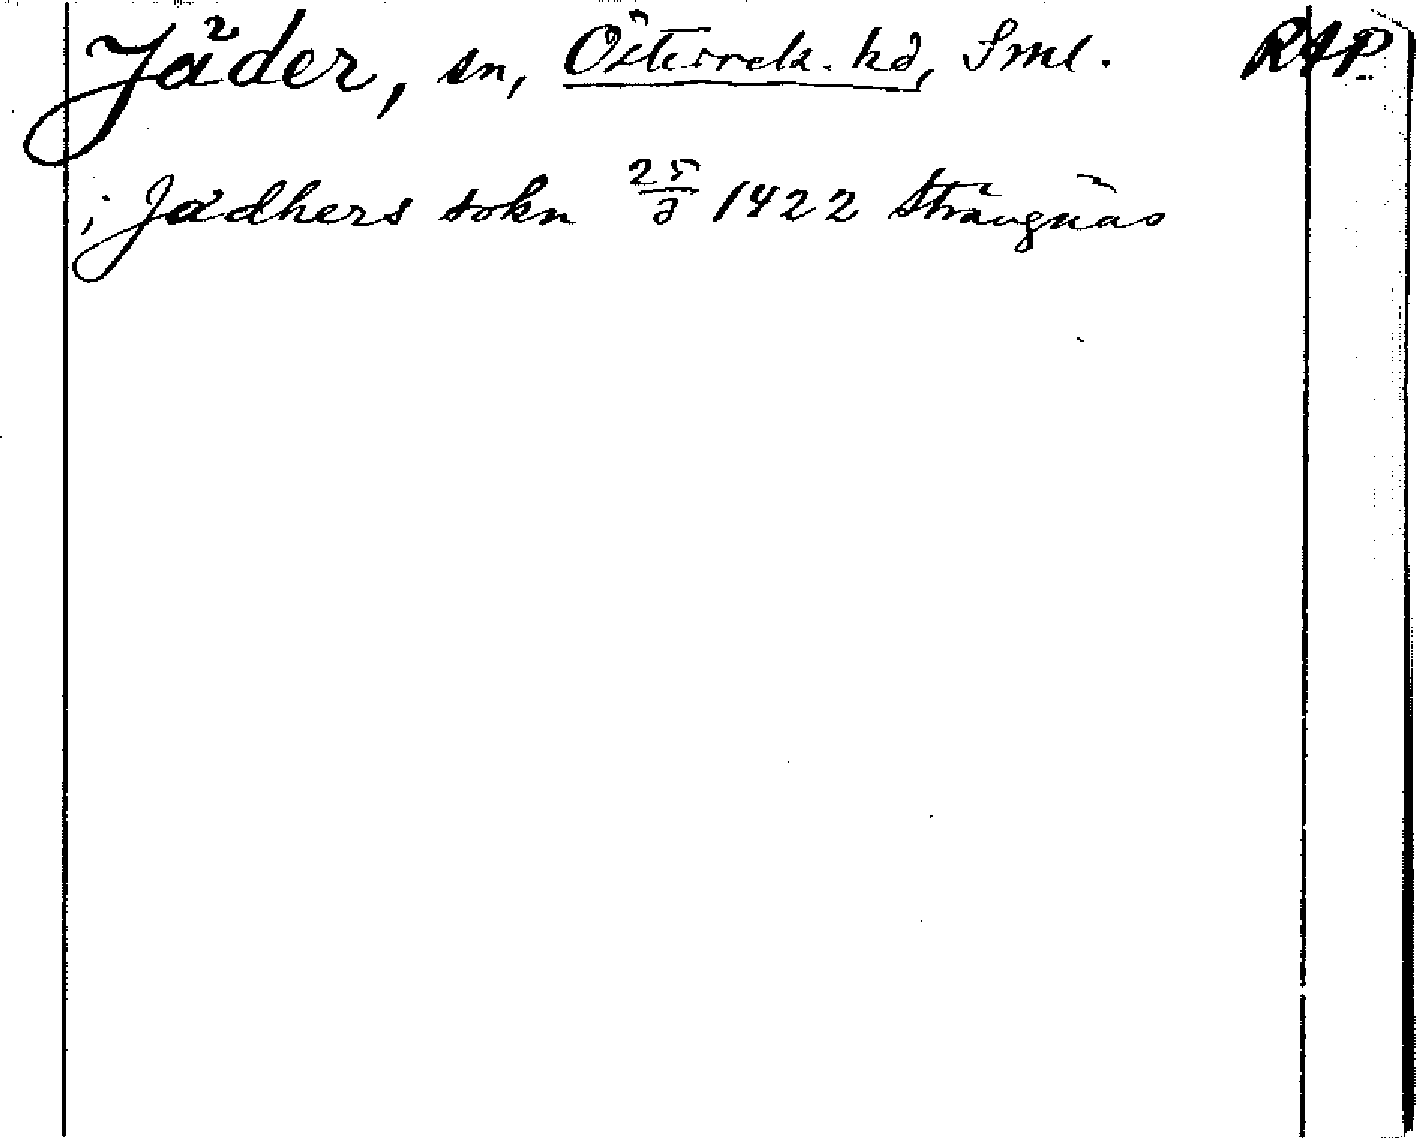 Jäder, sn, Österrek. hd, Sml. RAP.
i Jädhers sokn 25/2 1422 Strängnäs